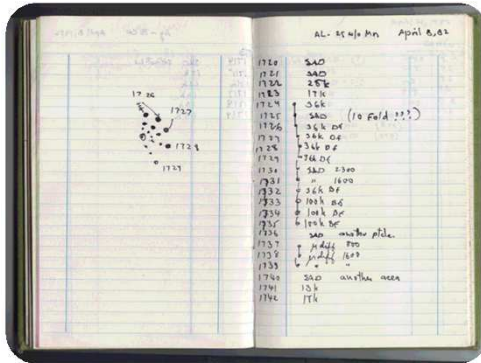 1726
1727
1728
1729
AL-25 w/o Mn April 8, 82
1720 SAD
1721 SAD
1722 25k
1723 17k
1724 36k
1725 SAD (10 Fold ???)
1726 36k DF
1727 36k DF
1728 36k DF
1729 36k DF
1730 SAD 2300
1731 " 1600
1732 36k DF
1733 100k DF
1734 100k DF
1735 100k DF
1736 SAD another
1737 μdiff 800
1738 μdiff 1600
1739 "
1740 SAD another area
1741 13k
1742 17k